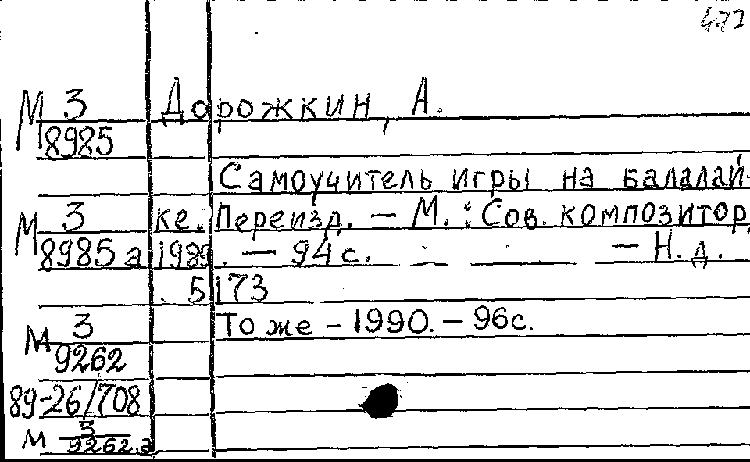 477
М 3 Дорожкин, А.
8985
Самоучитель игры на балалай-
М 3 ке. Переизд. – М. : Сов. композитор,
8985 а 1989. – 94 с. – Н. д.
5173
М 3 То же – 1990. – 96 с.
9262
89-26/708
М 3
9262 а